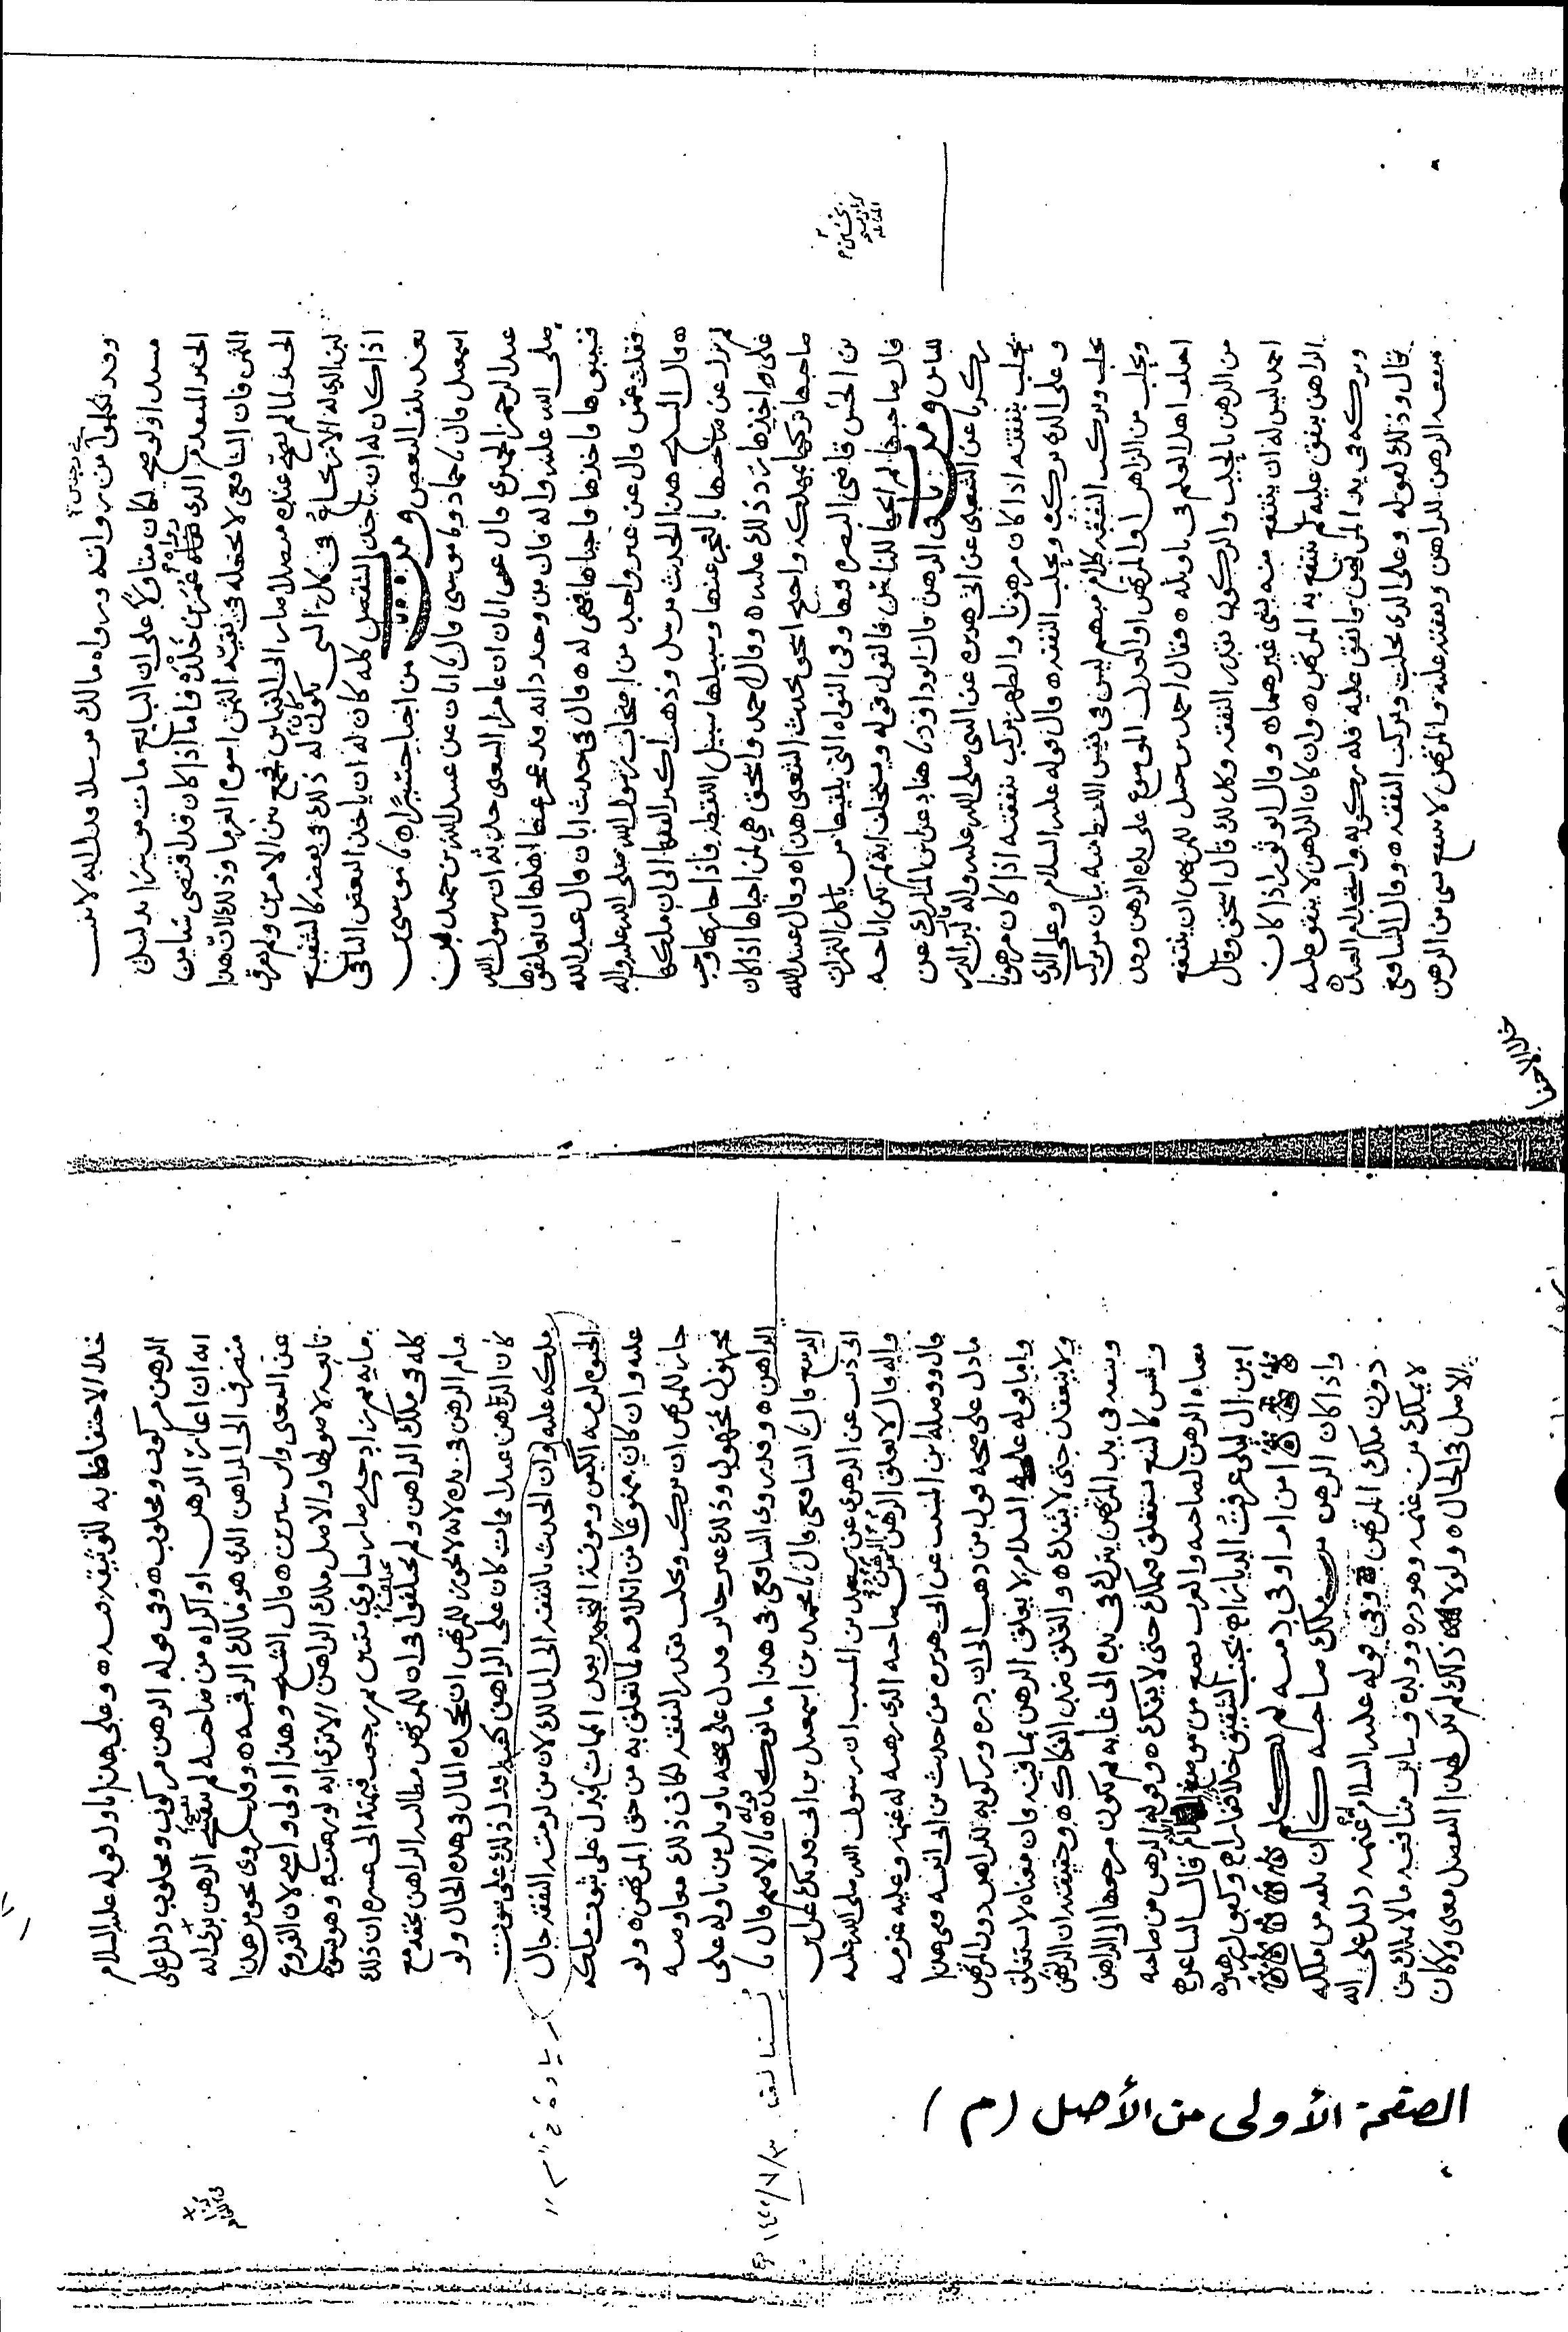 وقد تكلموا من رواته ورواه مالك مرسلا فدل انه لا يثبت
مسندا ولو صح لكان متأولا على ان البائع مات موسرا بدليل
الخبر المتقدم الذي رواه عمر بن خلدة فاما اذا كان قد اقتضى شيئا من
الثمن فان الشافعي لا يجعله في بقية الثمن اسوة الغرماء وذلك لان هذا
الخبر لما لم يصح عنده متصلا صار الى القياس فجمع بين الامرين ولم يفرق
لان الذي له الارتجاع في كل الشي كان له ذلك في بعضه كالشفيع
اذا كان له ان ياخذ الشقص كله كان له ان ياخذ البعض الباقي
بعد تلف البعض ومن من احيا حسيرا نا موسى بن
اسمعيل قال نا حماد ونا موسى قال نا ابان عن عبيد الله بن حميد بن
عبد الرحمن الحميري قال عن ابان ان عامرا الشعبي حدثه ان رسول الله
صلى الله عليه واله قال من وجد دابة قد عجز عنها اهلها ان يعلفوها
فسيبوها فاخذها فاحياها فهي له قال في حديث ابان قال عبيد الله
فقلت عمن قال عن غير واحد من اصحاب رسول الله صلى الله عليه واله
قال الشيخ هذا الحديث مرسل وذهب اكثر الفقها الى ان ملكها
لم يزل عن صاحبها بالعجز عنها وسبيلها سبيل اللقطة فاذا جا ربها وجب
على واخذها رد ذلك عليه وقال احمد واسحق هي لمن احياها اذا كان
صاحبها تركها بمهلكة واحتج اسحق بحديث الشعبي هذا وقال عبيد الله
بن الحسن قاضي البصرة فيها وفي النواة التي يلقيها من ياكل التمر ان
قال صاحبها لم ابحها للناس فالقول قوله ويستحلف انه لم يكن اباحه
للناس ومن باب الرهن قال ابو داود نا هناد عن ابن المبارك عن
زكريا عن الشعبي عن ابي هريرة عن النبي صلى الله عليه واله قال لبن الدر
يحلب بنفقته اذا كان مرهونا والظهر يركب بنفقته اذا كان مرهونا
وعلى الذي يركب ويحلب النفقة قال قوله عليه السلام وعلى الذي
يحلب ويركب النفقة كلام مبهم ليس في نفس اللفظ منه بيان من يركب
ويحلب من الراهن او المرتهن او العدل الموضوع على يده الرهن وقد
اختلف اهل العلم في تاويله فقال احمد بن حنبل للمرتهن ان ينتفع
من الرهن بالحلب والركوب بقدر النفقة وكذلك قال اسحق وقال
احمد ليس له ان ينتفع منه بشي غيرهما وقال ابو ثور اذا كان
الراهن ينفق عليه لم ينتفع به المرتهن وان كان الراهن لا ينفق عليه
وتركه في يد المرتهن فانفق عليه فله ركوبه واستخدام العبد
قال وذلك لقوله وعلى الذي يحلب ويركب النفقة وقال الشافعي
منفعة الرهن للراهن ونفقته عليه والمرتهن لا ينتفع بشي من الرهن
خلا الاحتفا
خلا الاحتفاظ به للوثيقة فيه وعلى هذا تاول قوله عليه السلام
الرهن مركوب ومحلوب وفي قوله الرهن مركوب ومحلوب دليل على
انه ان اعار الرهن او اكراه من صاحبه لم يفسخ الرهن نرى انه
منصرف الى الراهن الذي هو مالك الرقبة وقد روي نحو من هذا
عن الشعبي وابن سيرين قال الشيخ وهذا اولى واصح لان الفروع
تابعة لاصولها والاصل ملك الراهن الا ترى انه لو رهنه وهو يسوي
مايه ثم زاد حتى صار يساوي مئتين ثم رجعت قيمته الى عشرة ان ذلك
كله في ملك الراهن ولم يختلفوا في ان للمرتهن مطالبة الراهن بحقه مع
قيام الرهن في يده لانه لا يجوز للمرتهن ان يجحد المال في هذه الحال ولو
كان الرهن عبدا فمات كان على الراهن كفنه فدل ذلك على ثبوت
ملكه عليه وان الحديث بالنفقة الى المالك لان من لزمته النفقة حال
الحيوة لزمته الكفن ومونة التجهيز بعد الممات يدل على ثبوت ملكه
عليه وان كان ممنوعا من اتلافه لما تعلق به من حق المرتهن ولو
جاز للمرتهن ان يركب ويحلب بقدر النفقة لكان ذلك معاوضة
مجهول بمجهول وذلك غير جائز فدل على صحة تاويل من تاوله على
الراهن وقد روى الشافعي في هذا ما يؤكد قوله نا الاصم قال نا
الربيع قال نا الشافعي قال نا محمد بن اسمعيل بن ابي فديك عن ابن
ابي ذئب عن الزهري عن سعيد بن المسيب ان رسول الله صلى الله عليه
واله قال لا يغلق الرهن الرهن من صاحبه الذي رهنه له غنمه وعليه غرمه
قال ووصله بن المسيب عن ابي هريرة من حديث بن ابي انيسة ففي هذا
ما دل على صحة قول من ذهب الى ان دره وركوبه للراهن دون المرتهن
واما قوله عليه السلام لا يغلق الرهن بما فيه فان معناه لا يستغلق
ولا ينعقد حتى لا يفتك والغلق ضد الفكاك وحقيقته ان الرهن
وينعقد في يد المرتهن يترك في يده الى غاية ثم يكون مرجعها الى الراهن
وليس كالبيع يستغلق فيملك حتى لا ينفك وقوله الرهن من صاحبه
معناه الرهن لصاحبه والعرب تضع من موضع اللام قال الشاعر
امن ال ليلى عرفت الديارا بجنب الشقيق خلاء قفارا وكقول زهير
امن ام اوفى دمنة لم تكلم
واذا كان الرهن من ملك صاحبه كان تلفه من ملكه
دون ملك المرتهن وفي قوله عليه السلام له غنمه دليل على انه
لا يملك من غنمه وهو دره وولده وسائر منافعه مالا يملك من
الاصل في الحال ولولا ذلك لم يكن لهذا الفصل معنى ولا كان
زيادة في "م"
١٤٢٠/٧/٣
الصفحة الأولى من الأصل (م)